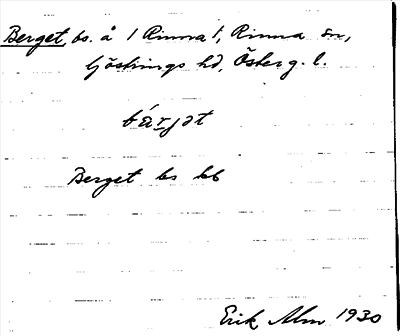 Berget, bs. å 1 Rinna 1, Rinna sn,
Göstrings hd, Österg. l.
bárjət
Berget bs kb
Erik Alm 1930